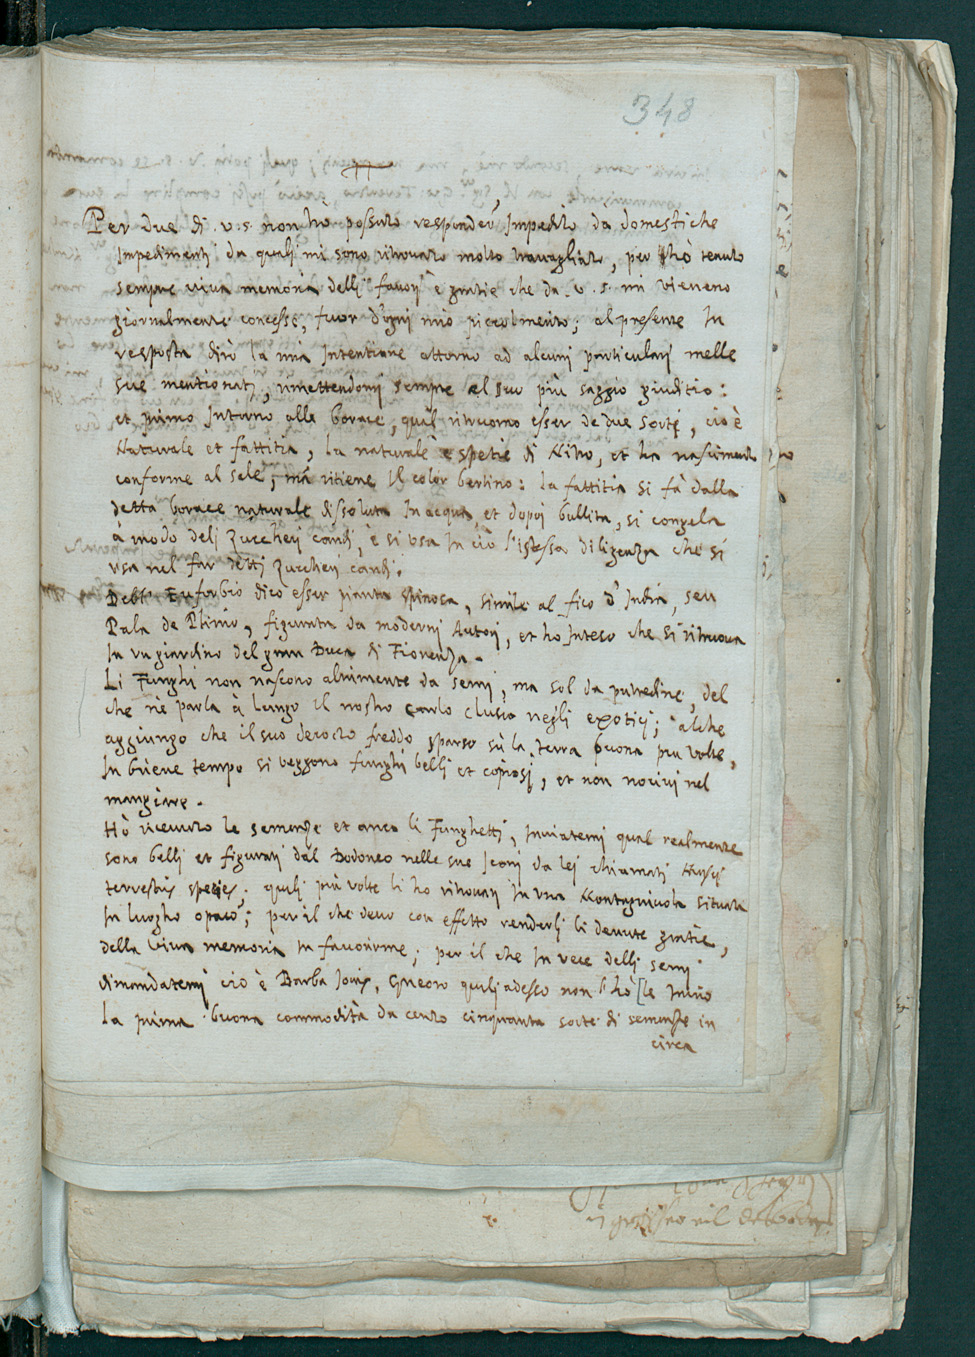 348
Per due di .v.s. non hò possuto responder, Impedito da domestiche
Impedimenti da quali mi sono ritrovato molto travagliato, però hò tenuto
sempre viva memoria delli favori è gratie che da .v.s. mi vieneno
giornalmente concesse, fuor d'ogni mio meto; al presente In
resposta dirò la mia Intentione attorno ad alcuni particulari nelle
sue mentionati, rimettendomi sempre al suo più saggio giuditio:
et primo Intorno alla borace, qual ritruovo esser de due sorti, cio è
Naturale et fattitia, la naturale è spetie di Nitro, et ha nascimento
conforme al sale, mà ritiene Il color bertino: la fattitia si fà dalla
detta borace naturale dissoluta In acqua et dopoi bullita, si congela
à modo deli zuccheri candi, è si usa In ciò l'istessa diligenza che si
usa nel far detti zuccheri candi.
Dell' Euforbio dico esser pianta spinosa, simile al fico d'India, seu
Pala de Plinio, figurata da moderni Autori, et ho Inteso che si ritruova
In un giardino del gran Duca di Fiorenza.
Li Funghi non nascono altrimente da semi, ma sol da putredine, del
che ne parla à lungo il nostro Carlo Clusio negli exotici; al che
aggiungo che il suo decocto freddo sparso sù la terra buona più volte,
In brieve tempo si veggono funghi belli et copiosi, et non nocivi nel
mangiare.
Hò ricevuto le semenze et anco li Funghetti, Inviatemi qual realmente
sono belli et figurati dal Dodoneo nelle sue Iconi da lei chiamati Musci
terrestris species; quali più volte li ho ritrovati In una Montagnuola situata
In luogho opaco; per il che devo con effetto renderli li devute gratie,
della viva memoria In favorirme; per il che In vece delli semi
dimandatemi ciò è Barba Jovis, Cneoro quali adesso non l'hò [le Invio
la prima buona commodità da cento cinquanta sorte di semenze in
circa